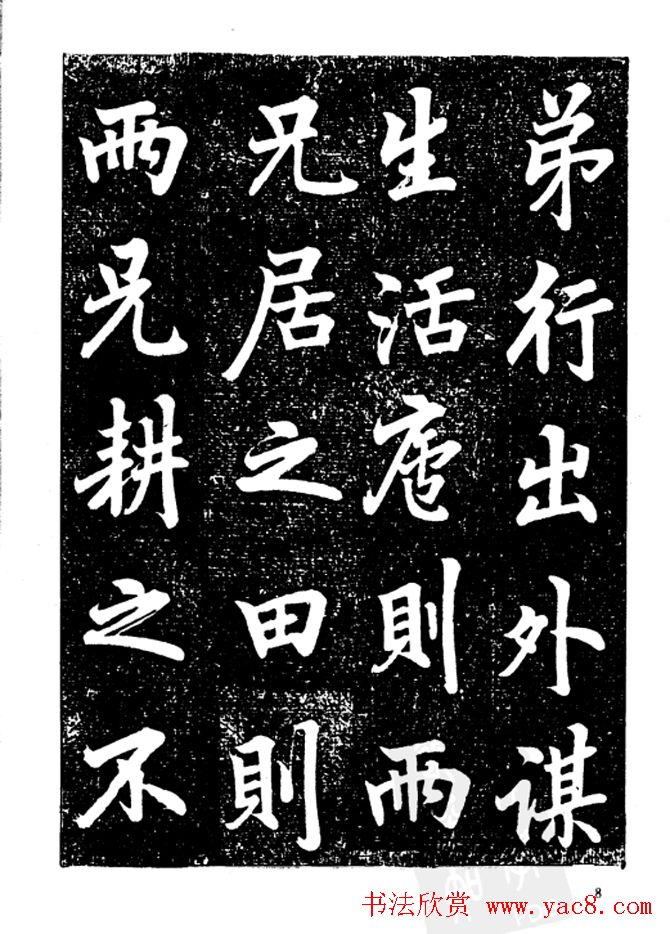 弟行出外謀
生活庐則兩
兄居之田則
兩兄耕之不
8
书法欣赏 www.yac8.com